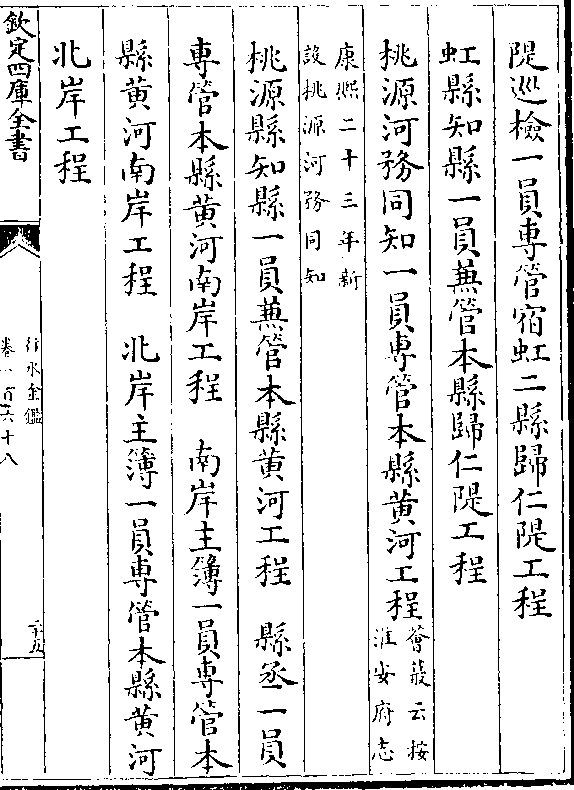 隄巡檢一員專管宿虹二縣歸仁隄工程
虹縣知縣一員蕪管本縣歸仁隄工程
桃源河務同知一員專管本縣黄河工程薈蕞云按
淮安府志
康熙二十三年新
設桃源河務同知
桃源縣知縣一員蕪管本縣黄河工程　縣丞一員
專管本縣黄河南岸工程　南岸主簿一員專管本
縣黄河南岸工程　北岸主簿一員專管本縣黄河
北岸工程
欽定四庫全書
行水金鑑
卷一百六十八
二十五